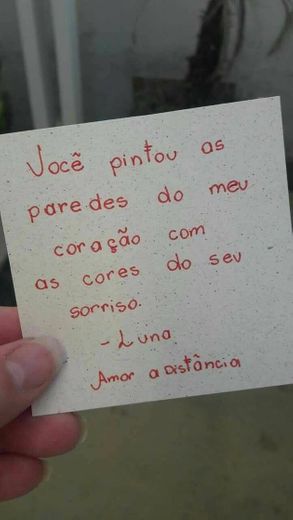 Você pintou as
paredes do meu
coração com
as cores do seu
sorriso.
- Luna.
Amor a Distância